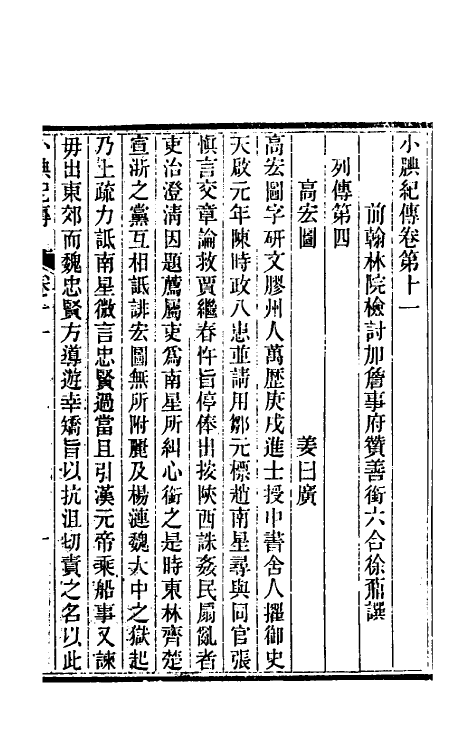 小腆紀傳卷第十一
前翰林院檢討加詹事府贊善銜六合徐鼒譔
列傳第四
高宏圖 姜曰廣
高宏圖字硏文膠州人萬歷庚戌進士授中書舍人擢御史
天啟元年陳時政八忠並請用鄒元標趙南星尋與同官張
愼言交章論救賈繼春忤旨停俸出按陝西誅姦民扇亂者
吏治澄淸因題薦屬吏爲南星所糾心銜之是時東林齊楚
宣浙之黨互相詆誹宏圖無所附麗及楊漣魏大中之獄起
乃上疏力詆南星微言忠賢過當且引漢元帝乘船事又諫
毋出東郊而魏忠賢方導遊幸矯旨以抗沮切責之名以此
小腆紀傳 卷十一 一